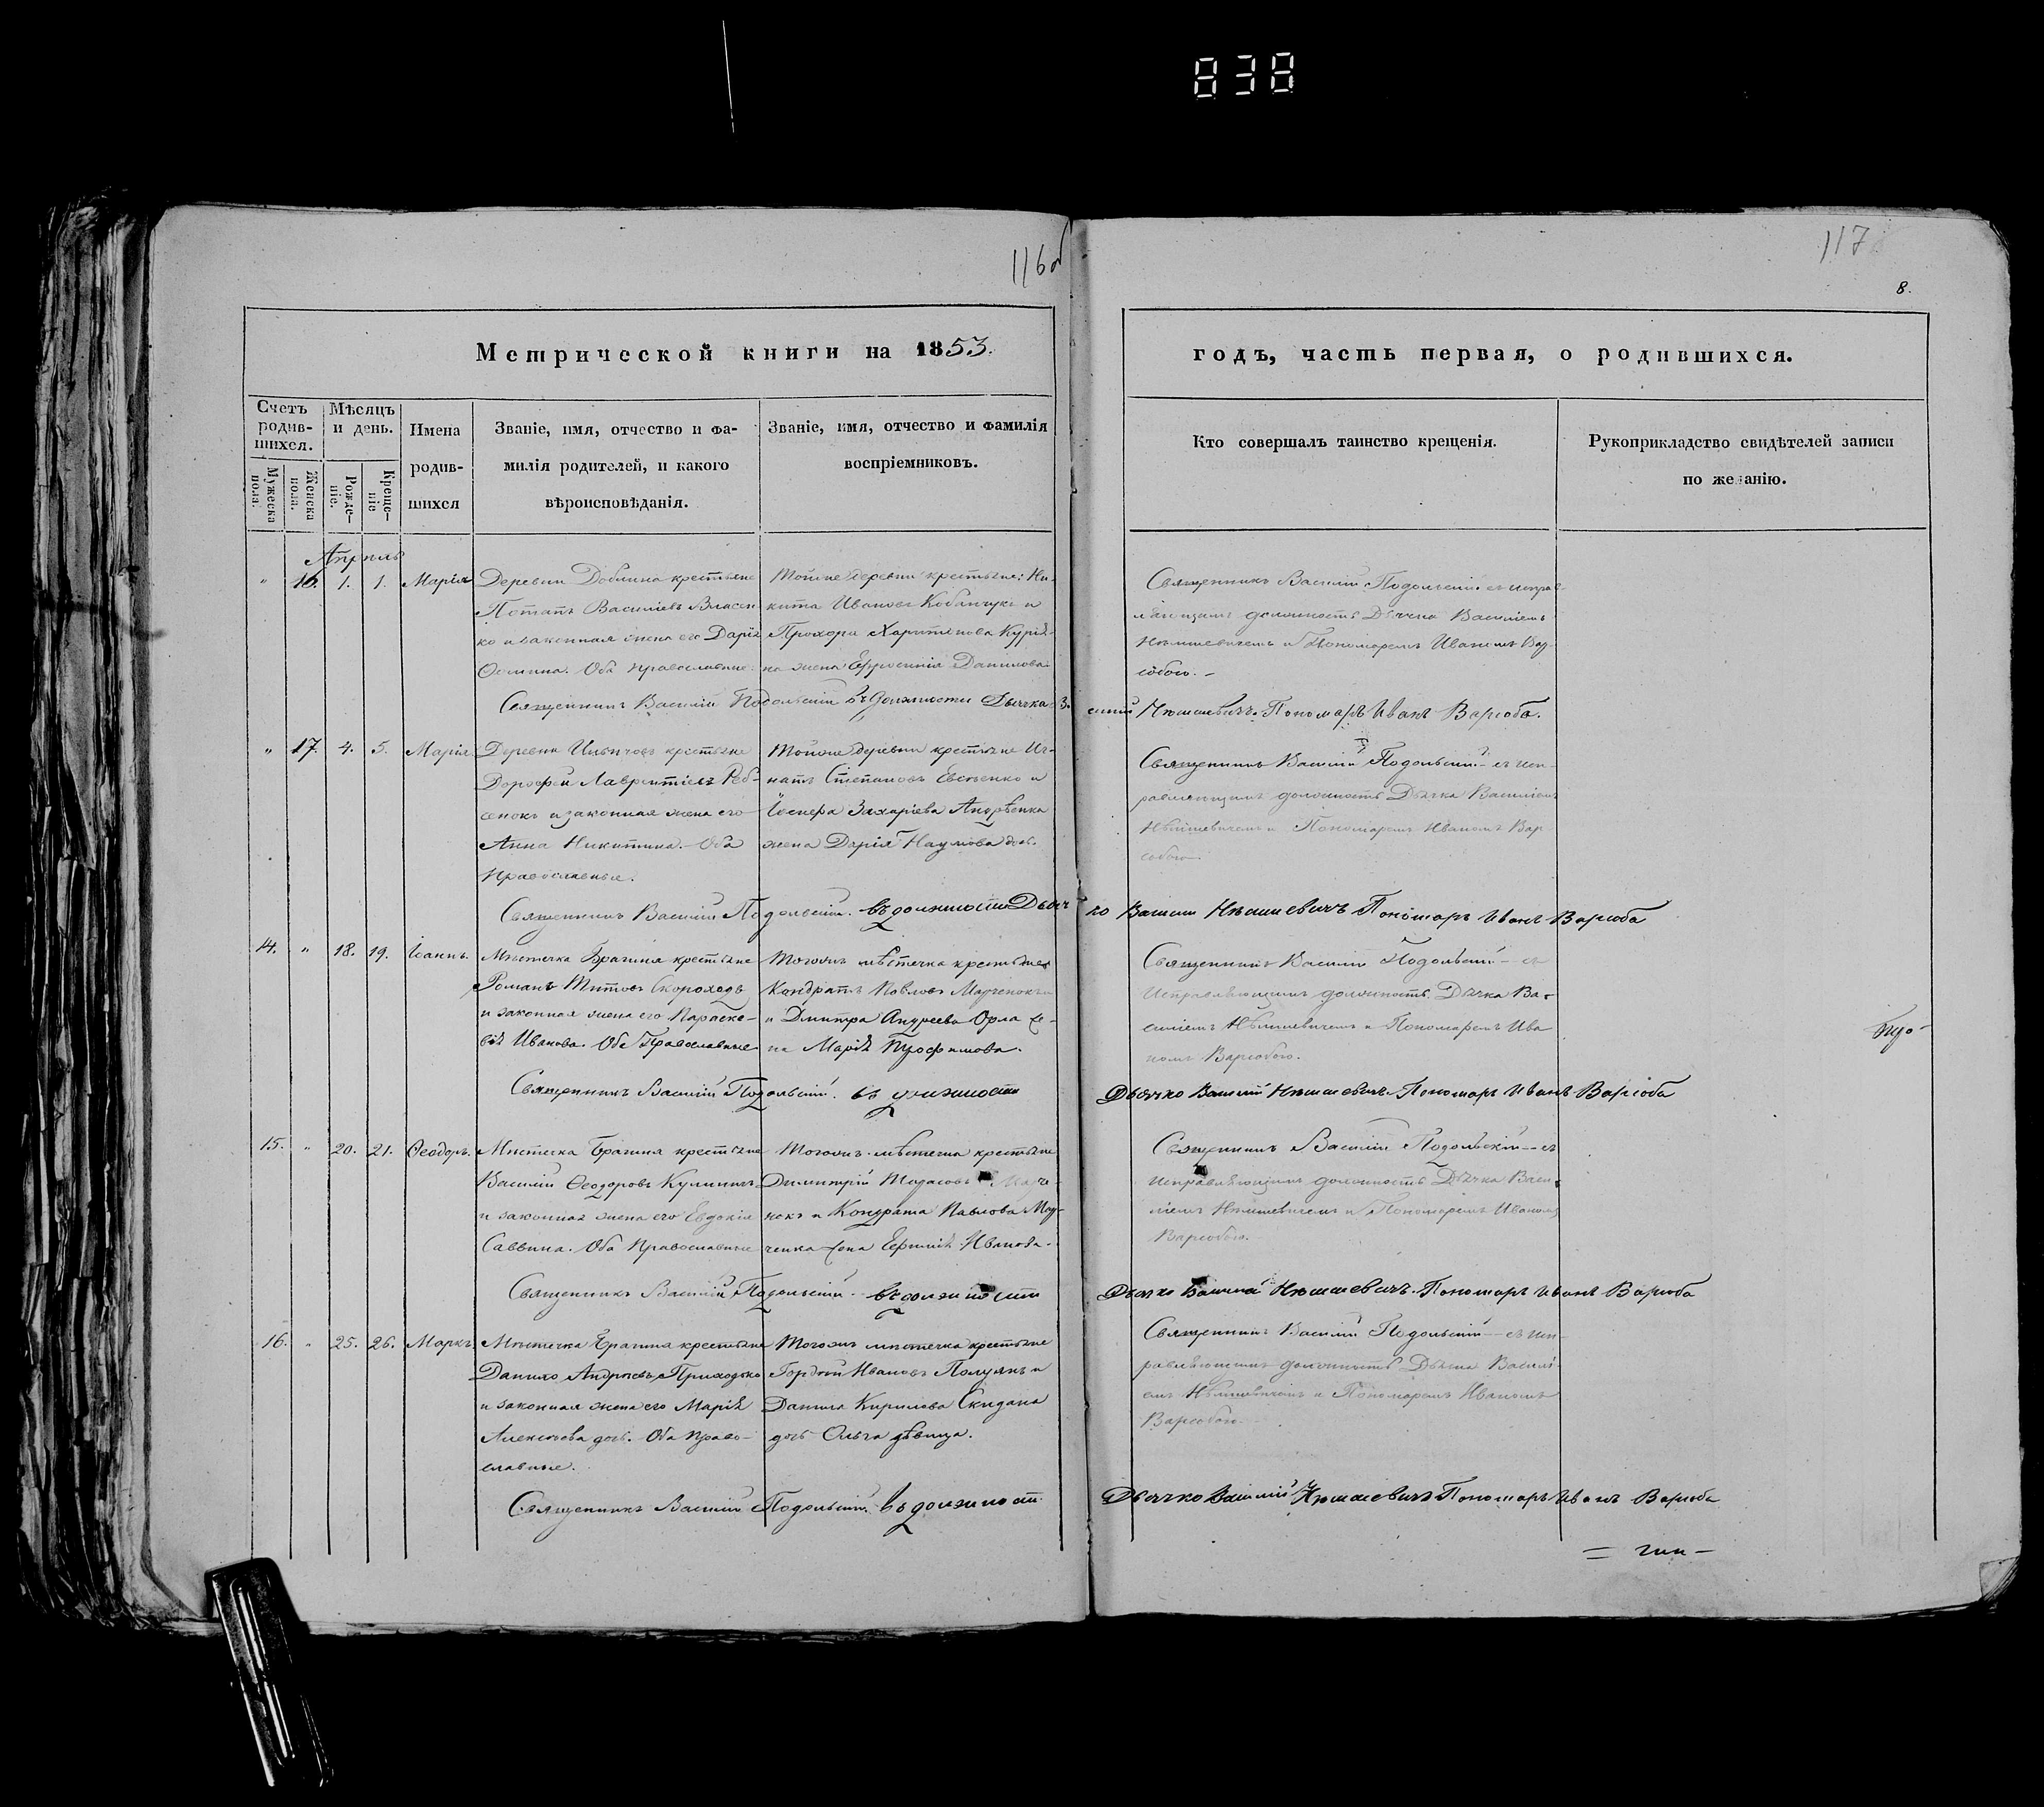 838
116об
117
8.
Метрической книги на 1853.
годъ, часть первая, о родившихся.
Счетъ родив-шихся.
Мѣсяцъ и день.
Имена родив-шихся
Званіе, имя, отчество и фа-
милія родителей, и какого
вѣроисповѣданія.
Званіе, имя, отчество и фамилія
воспріемниковъ.
Кто совершалъ таинство крещенія.
Рукоприкладство свидѣтелей записи
по желанію.
Мужеска пола.
Женска пола.
Рожде-ніе.
Креще-ніе
Апрѣль
" 16. 1. 1. Марія
Деревни крестьяне
Потапъ Василіевъ Власен
ко и законная жена его Дарія
Оба православные.
Тойже деревни крестьяне: Ни-
кита Ивановъ Кобанчукъ и
Прохора Харитонова
на жена Ефросинія Данилова
Священникъ Василій Подольскій съ исправ-
ляющимъ должность Дьячка Василіемъ
Нѣмшевичемъ и Пономаремъ Иваномъ Вар-
собою.
Священникъ Василій Подольскій въ должности Дьячка Нѣмшевичъ. Пономаръ Иванъ Варсоба.
" 17. 4. 5. Марія
Деревни крестьяне
Дорофей Лаврентіевъ Реб-
сенокъ и законная жена его
Анна Никитина. Оба
Православные.
Тойже деревни крестьяне Иг-
натъ Степановъ Евсѣенко и
Захаріева Андрѣенка
жена Дарія Наумова дочь.
Священникъ Василій Подольскій съ исп-
равляющимъ должность Дьячка Василіемъ
Нѣмшевичемъ и Пономаремъ Иваномъ Вар
собою.
Священникъ Василій Подольскій. въ должности Дьяч ко Василій Нѣмшевичъ Пономаръ Иванъ Варсоба
14. " 18. 19. Іоаннъ.
Мѣстечка Брагиня крестьяне
Романъ Титовъ Скороходъ
и законная жена его Параске-
вія Иванова. Оба Православные
Тогожъ мѣстечка крестьяне
Кондратъ Павловъ Марченокъ
и Дмитра Андреева Орла же-
на Марія Трофимова.
Священникъ Василій Подольскій съ
исправляющимъ должность Дьячка Ва-
силіемъ Нѣмшевичемъ и Пономаремъ Ива
номъ Варсобою.
Священникъ Василій Подольскій. въ должности
Дьячко Василій Нѣмшевичъ. Пономаръ Иванъ Варсоба
15. " 20. 21. Ѳеодоръ.
Мѣстечка Брагиня крестьяне
Василій Ѳеодоровъ Кулиничъ
и законная жена его Евдокія
Саввина. Оба Православные
Тогожъ мѣстечка крестьяне
Димитрій Марче-
нокъ и Кондрата Павлова Мар-
ченка жена Иванова.
Священникъ Василій Подольскій съ
исправляющимъ должность Дьячка Васи-
ліемъ Нѣмшевичемъ и Пономаремъ Иваномъ
Варсобою.
Священникъ Василій Подольскій. въ должности
Дьячко Василій Нѣмшевичъ. Пономаръ Иванъ Варсоба
16. " 25. 26. Маркъ
Мѣстечка Брагиня крестьяне
Данило Андреевъ Приходько
и законная жена его Марія
Алексѣева дочь. Оба Право-
славные.
Тогожъ мѣстечка крестьяне
Гордѣй Ивановъ Полуянъ и
Данила Кирилова Скидана
дочь Ольга дѣвица.
Священникъ Василій Подольскій съ исп-
равляющимъ должность Дьячка Василі-
емъ Нѣмшевичемъ и Пономаремъ Иваномъ
Варсобою.
Священникъ Василій Подольскій въ должност.
Дьячко Василій Нѣмшевичъ Пономаръ Иванъ Варсоба